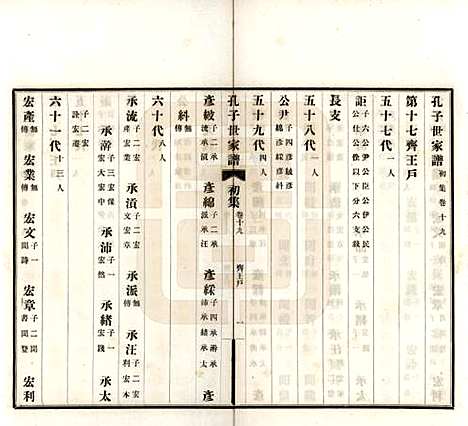 孔子世家譜 初集卷十九
第十七齊王戶
五十七代 一人
詎 子六公尹公臣公伊公民公仕公佺以下分六支敘
長支
五十八代 一人
公尹 子四彥敏彥綿彥綵彥紏
五十九代 四人
孔子世家譜 初集 卷十九 齊王戶 一
彥敏 子二承流承滇 彥綿 子二承派承汪 彥綵 子四承澍承沛承緒承太 彥
紏 無傳
六十代 八人
承流 子二宏產宏業 承滇 子二宏文宏章 承派 無傳 承汪 子二宏利宏本
承澍 子三宏儒宏大宏中 承沛 子一宏然 承緒 子一宏踐 承太
子二宏詮宏憲
六十一代 十三人
宏產 無傳 宏業 無傳 宏文 子一聞詩 宏章 子二聞書聞豎 宏利